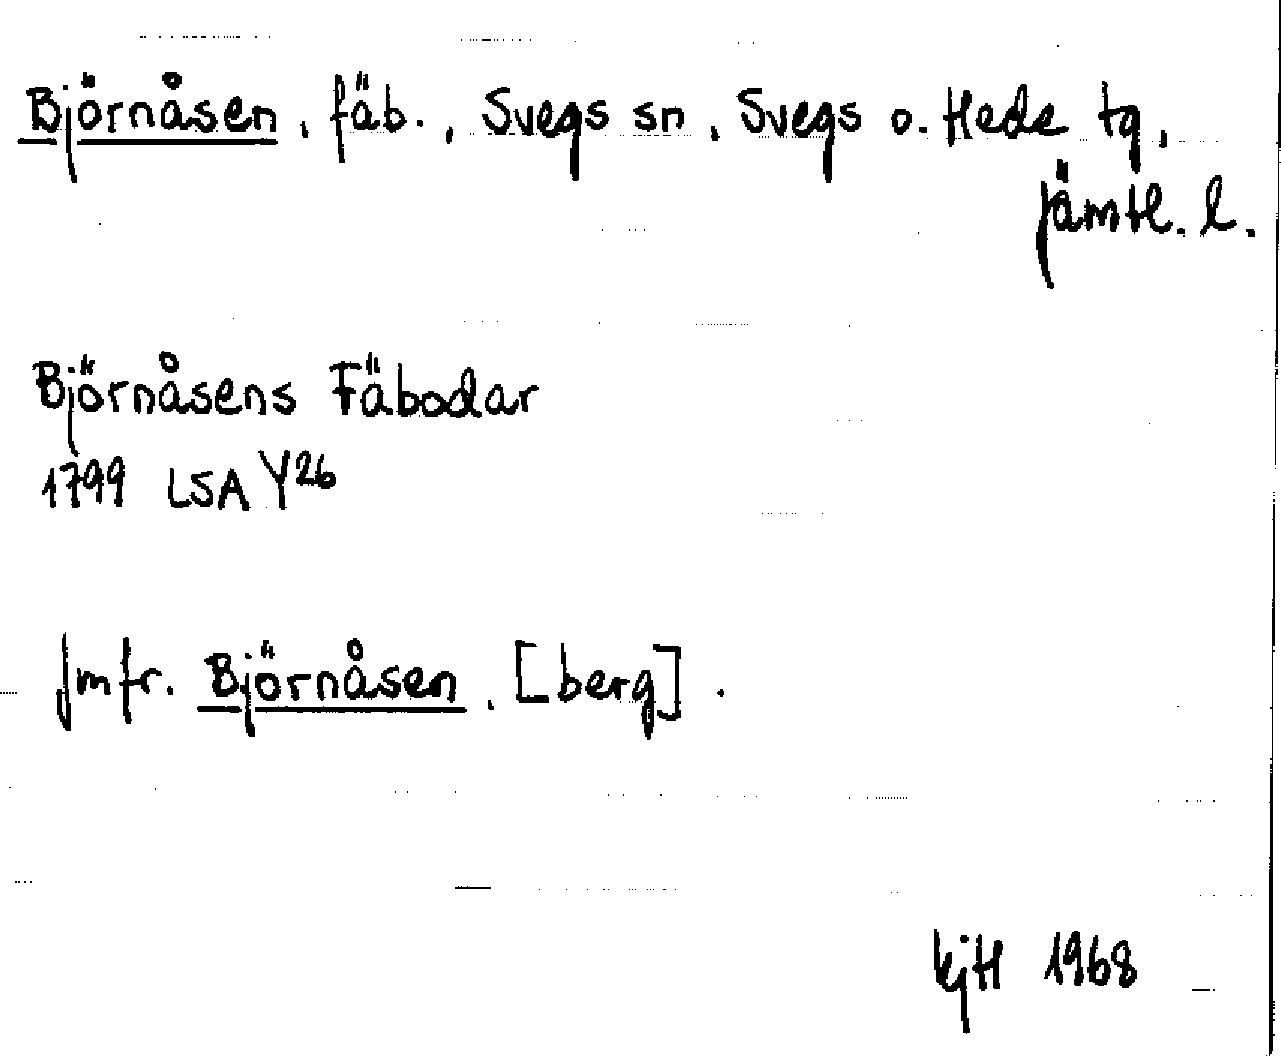 Björnåsen, fäb., Svegs sn, Svegs o. Hede tg,
Jämtl. l.
Björnåsens Fäbodar
1799 LSA Y26
Jmfr. Björnåsen, [berg].
KjH 1968